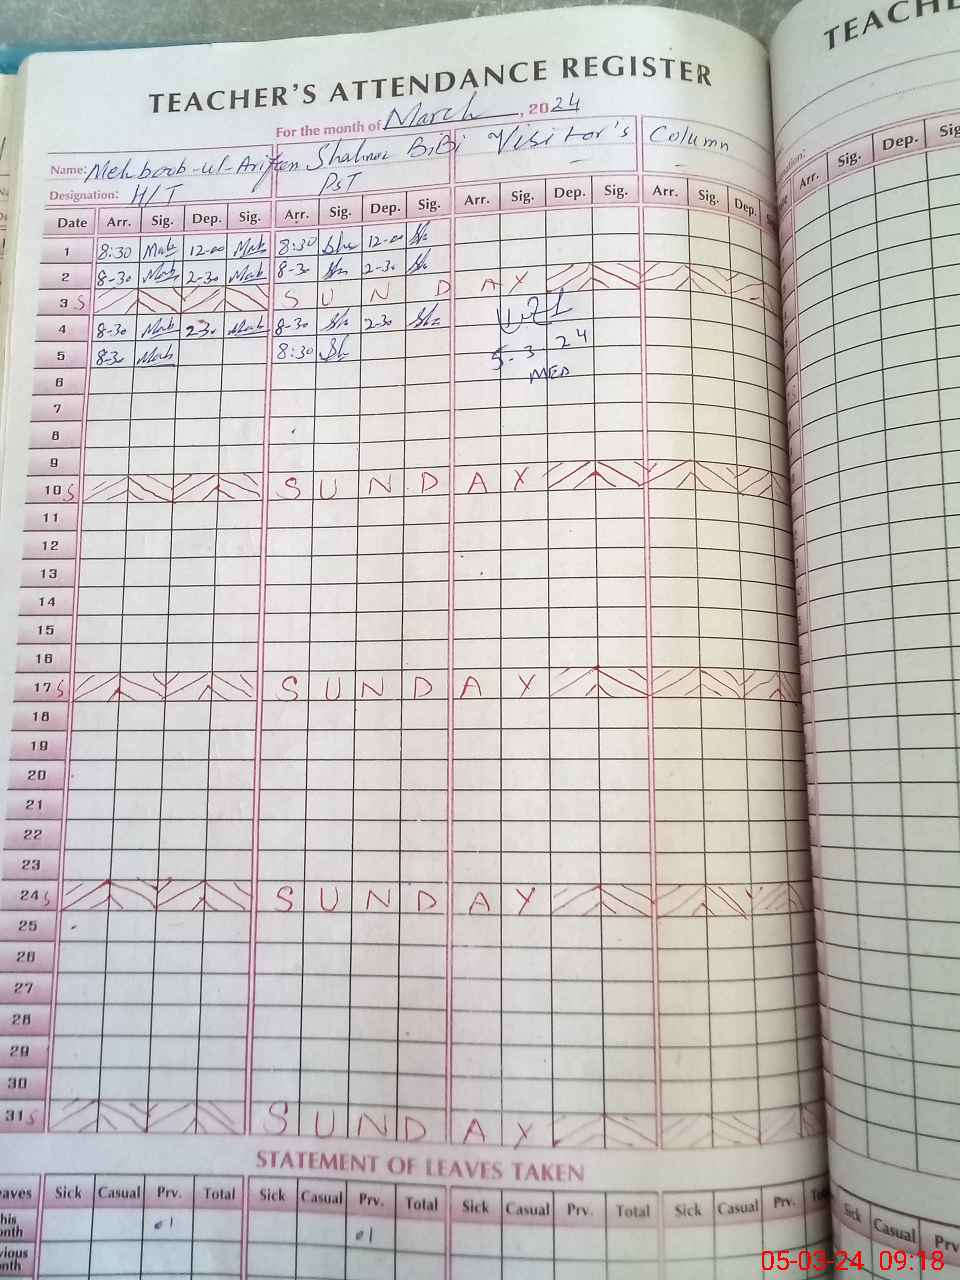 TEACHER'S ATTENDANCE REGISTER
For the month of March, 2024
Name: Mehboob-ul- Shahnaz BiBi Visitor's Column
Designation: H/T PST
Date Arr. Sig. Dep. Sig. Arr. Sig. Dep. Sig. Arr. Sig. Dep. Sig. Arr. Sig. Dep.
1 8:30 12-00 8:30 12-00
2 8-30 2-30 8-30 2-30
3 S SUNDAY
4 8-30 2-30 8-30 2-30
5 8-30 8:30 5-3-24
6 MED
7
8
9
10 S SUNDAY
11
12
13
14
15
16
17 S SUNDAY
18
19
20
21
22
23
24 S SUNDAY
25
26
27
28
29
30
31 S SUNDAY
STATEMENT OF LEAVES TAKEN
eaves Sick Casual Prv. Total Sick Casual Prv. Total Sick Casual Prv. Total Sick Casual Prv.
his onth 01 01
vious onth
TEACHE
Arr. Sig. Dep. Sig
Sick Casual Prv
05-03-24 09:18